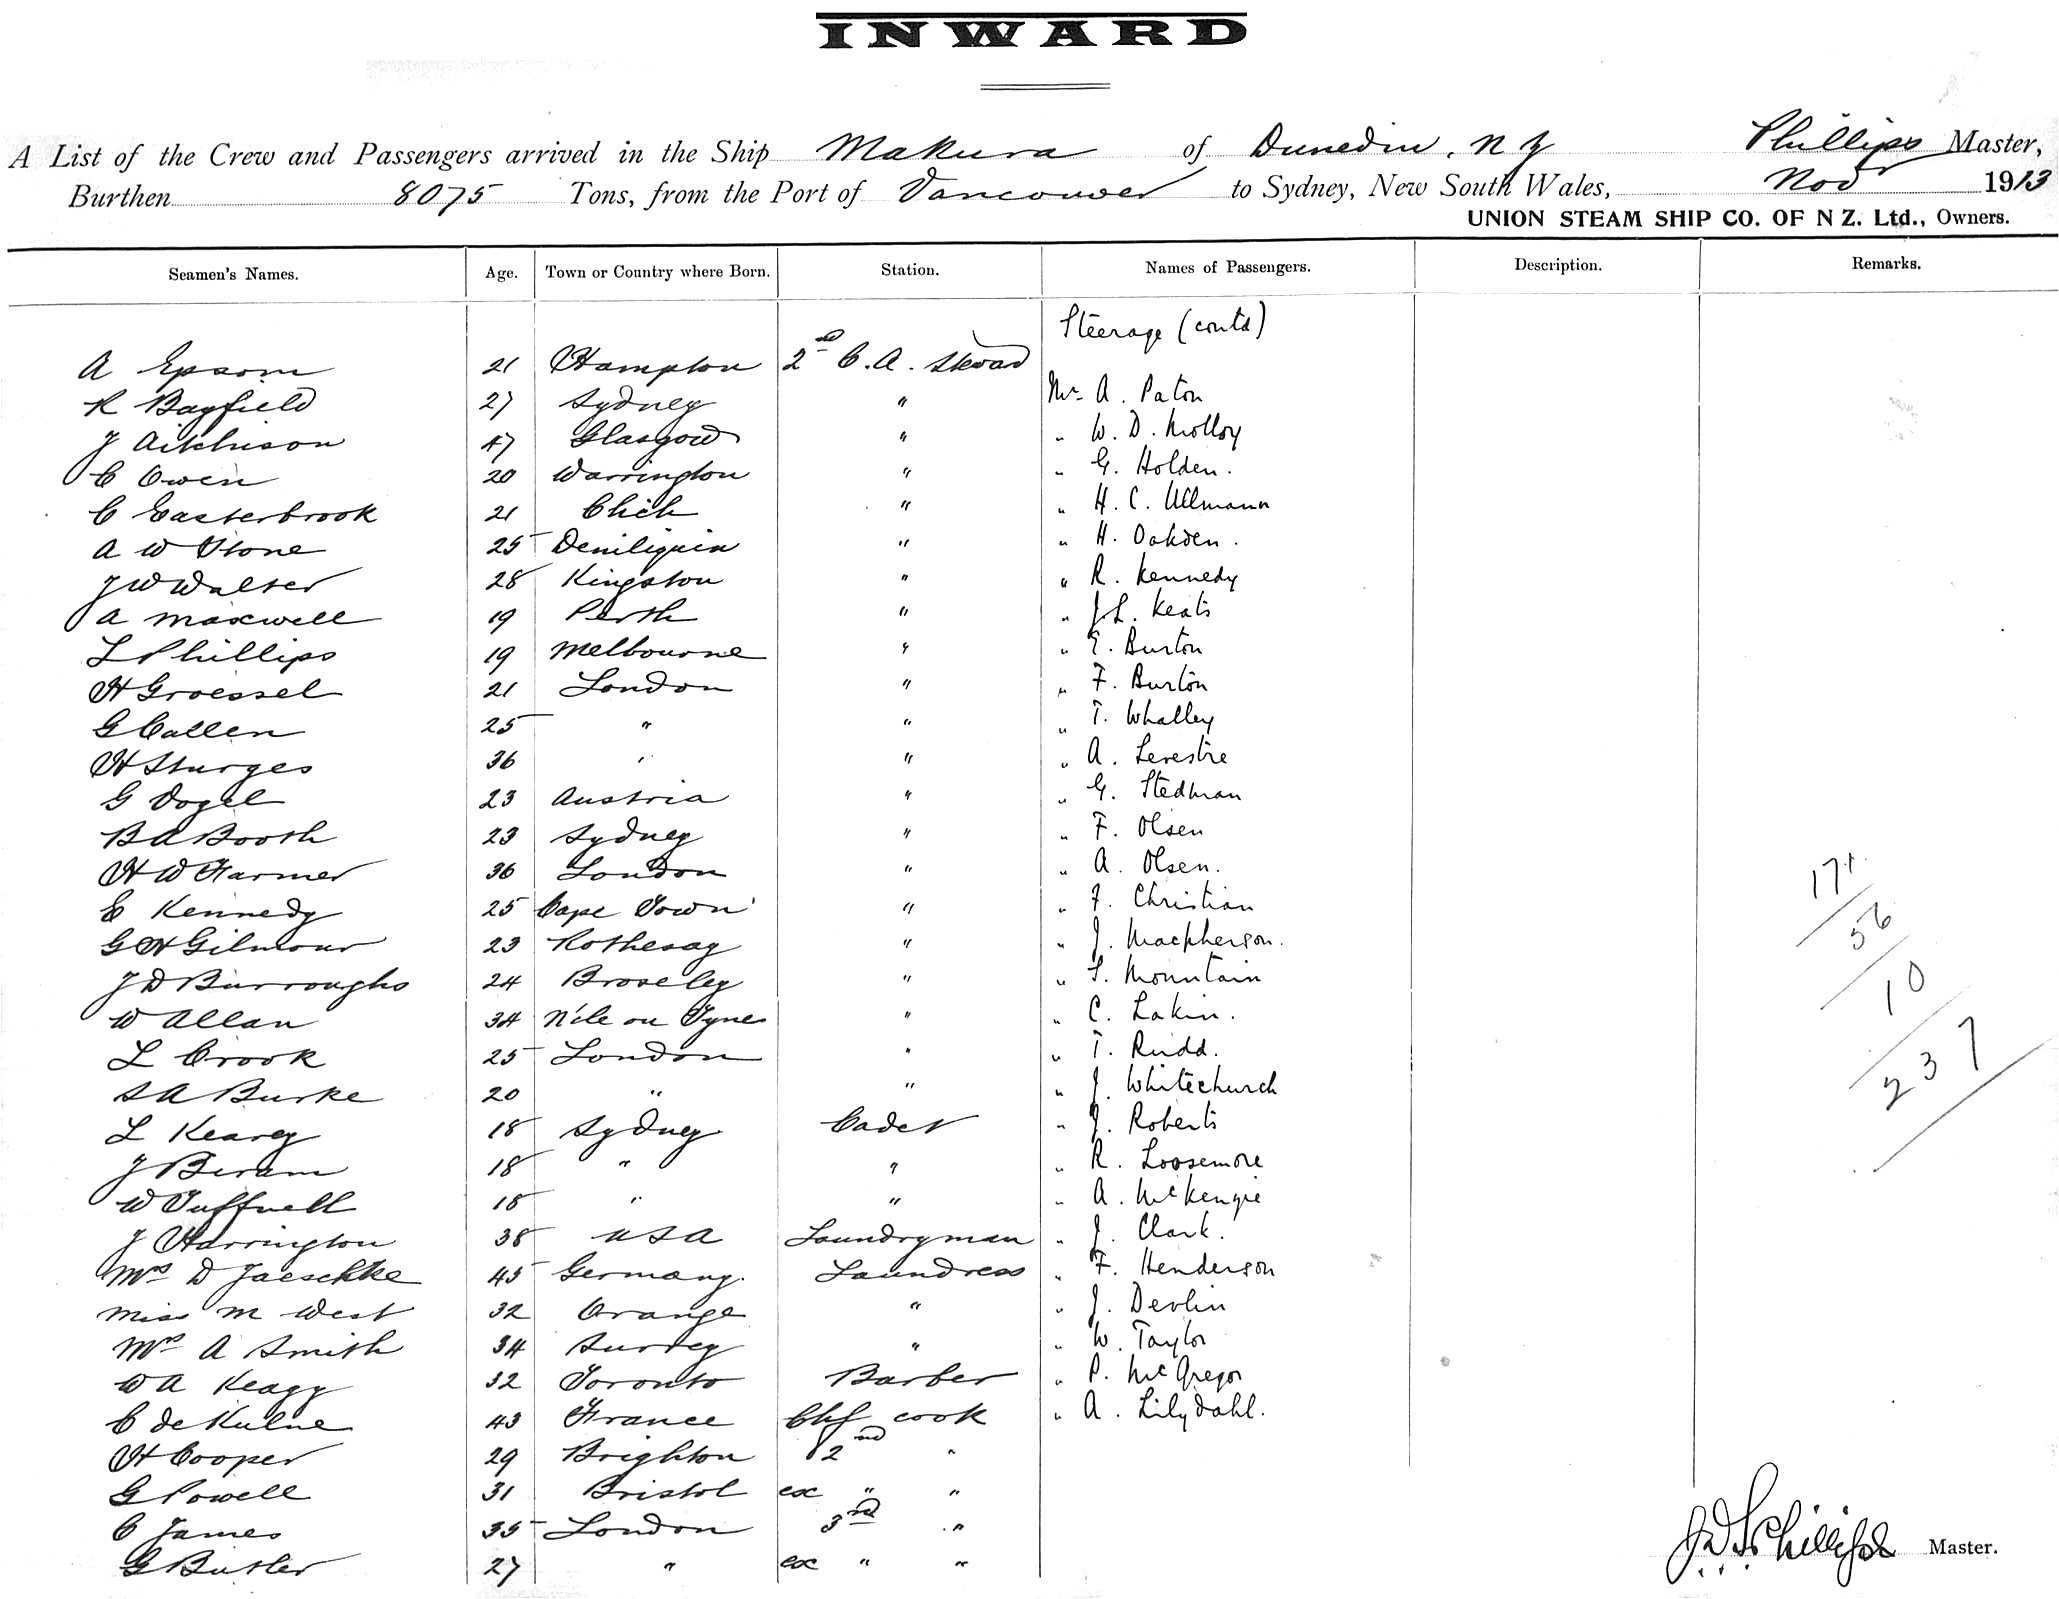 INWARD
A List of the Crew and Passengers arrived in the Ship Makura of Dunedin, N Z Phillips Master,
Burthen 8075 Tons, from the Port of Vancouver to Sydney, New South Wales, Nov 1913
UNION STEAM SHIP CO. OF N Z. Ltd., Owners.
Seamen's Names. Age. Town or Country where Born. Station. Names of Passengers. Description. Remarks.
Steerage (contd)
A Epsom 21 Hampton 2nd C. A. Steward
R Bayfield 27 Sydney " Mr A. Paton
J Aitchison 47 Glasgow " " W. D. Molloy
C Owen 20 Warrington " " G. Holden.
C Easterbrook 21 Chich " " H. C. Ullmann
A W Stone 25 Deniliquin " " H. Oakden.
J W Walter 28 Kingston " " R. Kennedy
A Maxwell 19 Perth " " J. L. Keats
L Phillips 19 Melbourne " " E. Burton
H Groessel 21 London " " F. Burton
G Callen 25 " " " T. Whalley
H Sturges 36 " " " A. Lerestre
G Vogel 23 Austria " " G. Stedman
B A Booth 23 Sydney " " F. Olsen
H W Farmer 36 London " " A. Olsen.
E Kennedy 25 Cape Town " " F. Christian
G H Gilmour 23 Rothesay " " J. Macpherson.
J D Burroughs 24 Broseley " " S. Mountain
W Allan 34 N'cle on Tyne " " C. Lakin.
L Crook 25 London " " T. Rudd.
S A Burke 20 " " " J. Whitechurch
L Kearey 18 Sydney Cadet " J. Roberts
J Beram 18 " " " R. Loosemore
W Tuffnell 18 " " " A. McKenzie
J Harrington 38 USA Laundryman " J. Clark.
Mrs D Jaeschke 45 Germany. Laundress " F. Henderson
Miss M West 32 Orange " " J. Devlin
Mrs A Smith 34 Surrey " " W. Taylor
W A Keagy 32 Toronto Barber " P. McGregor
C de Kulne 43 France Chf cook " A. Lilydahl.
H Cooper 29 Brighton 2nd "
G Powell 31 Bristol ex " "
C James 35 London 3rd "
G Butler 27 " ex " "
171
56
10
237
J D S Phillips Master.